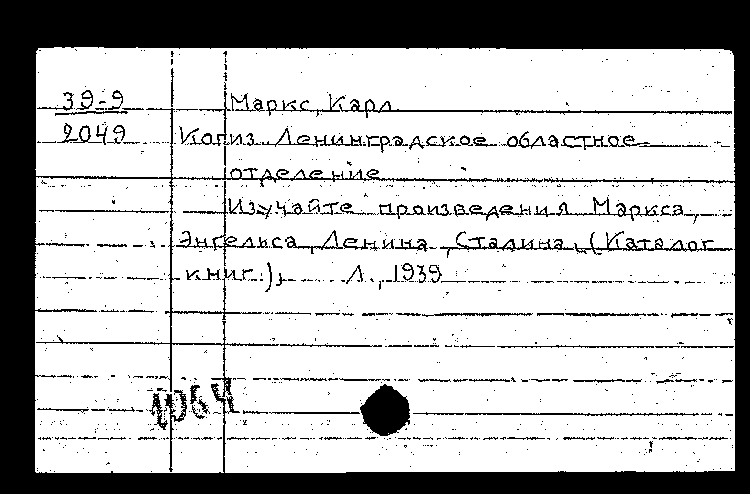 39-9 Маркс, Карл
2049 Когиз. Ленинградское областное
отделение
Изучайте произведения Маркса,
Энгельса, Ленина, Сталина. (Каталог
книг.), Л., 1939